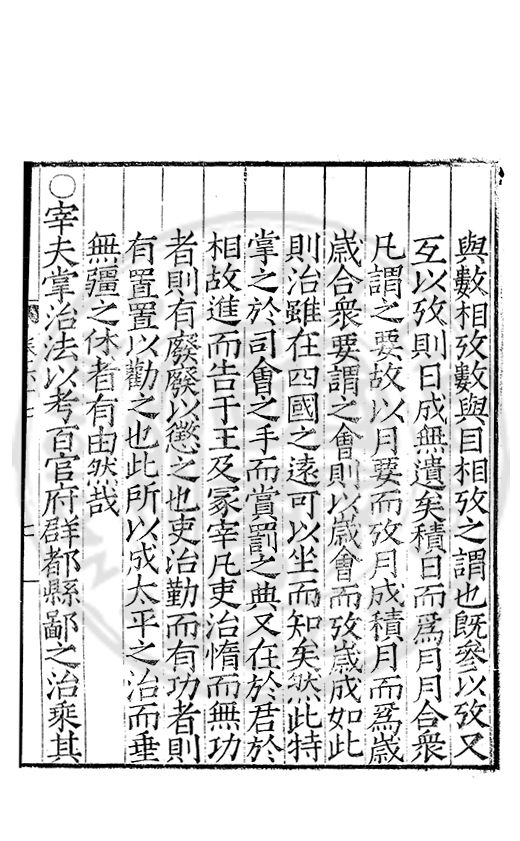 與數相攷數與目相攷之謂也旣參以攷又
互以攷則日成無遺矣積日而爲月月合衆
凡謂之要故以月要而攷月成積月而爲歲
歲合衆要謂之會則以歲會而攷歲成如此
則治雖在四國之遠可以坐而知矣然此特
掌之於司會之手而賞罰之典又在於君於
相故進而告于王及冢宰凡吏治惰而無功
者則有廢廢以懲之也吏治勤而有功者則
有置置以勸之也此所以成太平之治而垂
無疆之休者有由然哉
○宰夫掌治法以考百官府群都縣鄙之治乘其